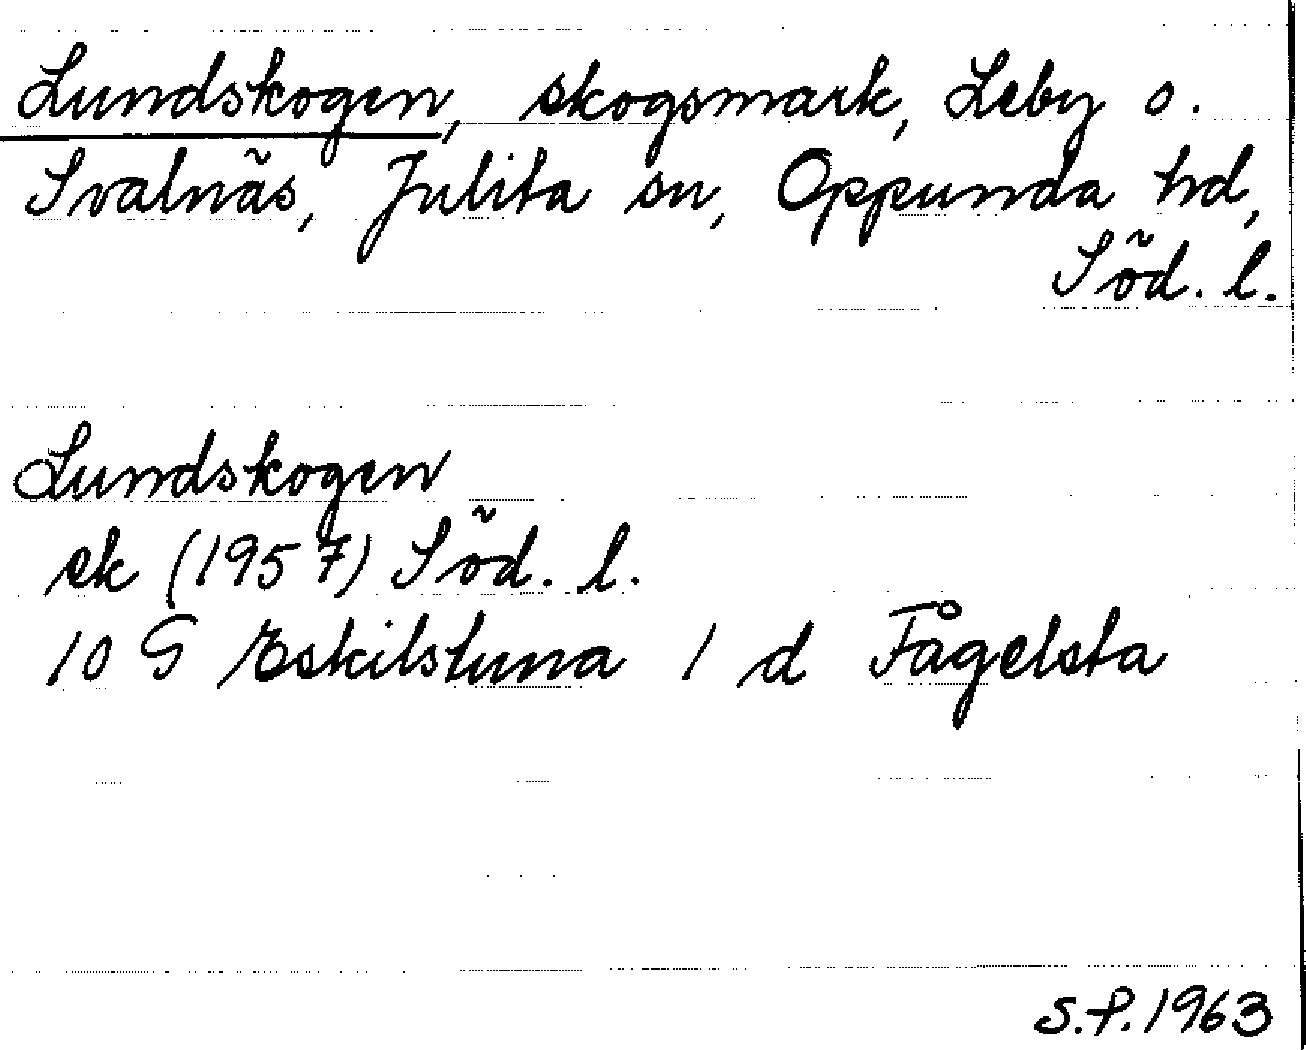 Lundskogen, skogsmark, Leby o.
Svalnäs, Julita sn, Oppunda hd,
Söd. l.
Lundskogen
ek (1957) Söd. l.
10 G Eskilstuna 1 d Fågelsta
S.P. 1963